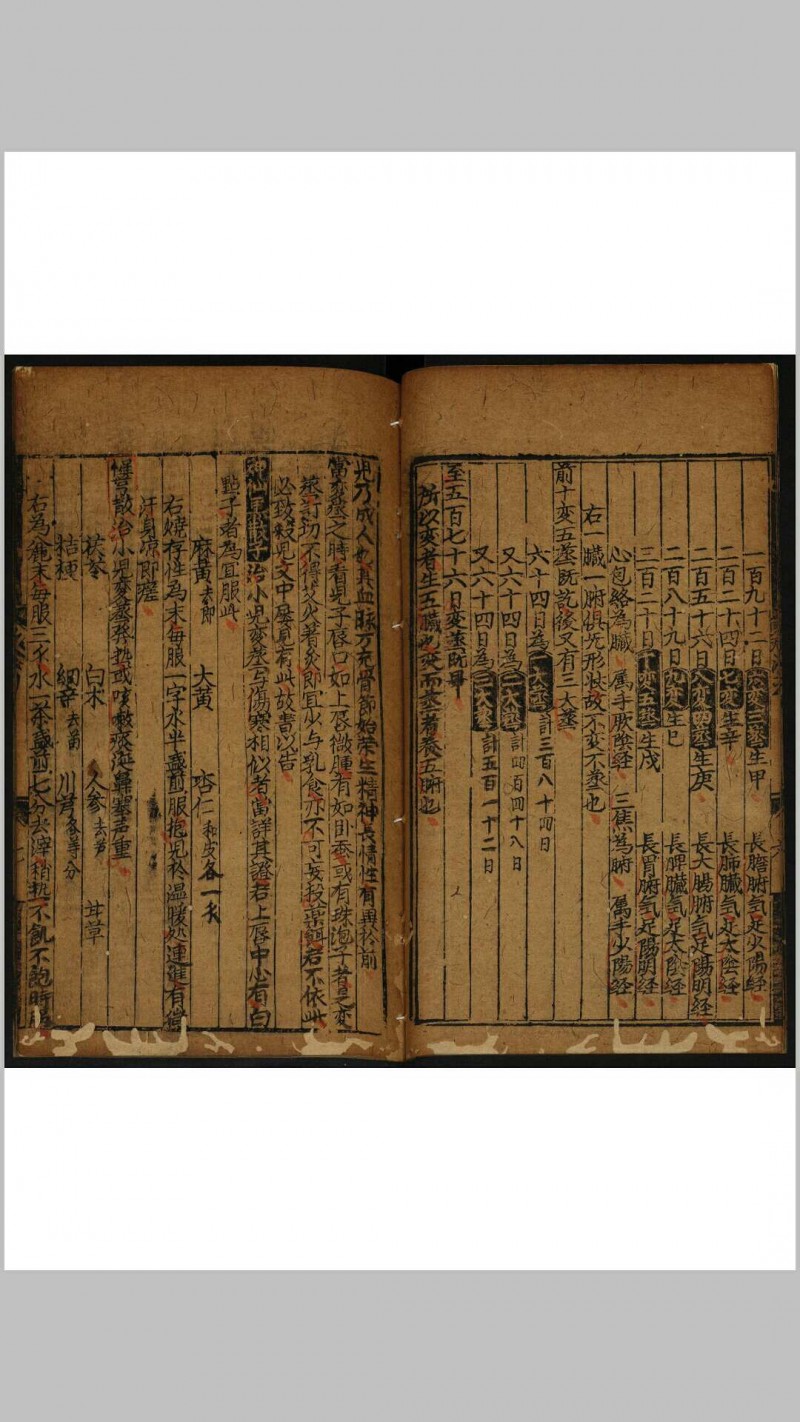 一百九十二日六变三蒸生甲 長膽腑气足少陽経
二百二十四日七变生辛 長肺臓气足太陰経
二百五十六日八变四蒸生庚 長大腸腑气足陽明経
二百八十九日九变生巳 長脾臓气足太陰経
三百二十日十变五蒸生戊 長胃腑气足陽明経
心包絡為臓 属手厥陰经 三焦為腑 属手少陽経
右一臓一腑俱旡形狀故不变不蒸也
前十变五蒸既訖後又有三大蒸
六十四日為一大蒸計三百八十四日
又六十四日為二大蒸計四百四十八日
又六十四日為三大蒸計五百一十二日
至五百七十六日变蒸既畢
所以变者生五臓也变而蒸者养五腑也
児乃成人也其血脉方充骨節始荣生精神長情性有異於前
當变蒸之時看児子唇口如上唇微腫有如卧蚕或有珠泡子者是变
蒸訂切不得艾火著灸即宜少与乳食亦不可妄投藥餌若不依此
必致殺児文中歷見有此故書以告
治小児变蒸与傷寒相似者當詳其證若上唇中心有白
點子者為宜服此
麻黄去節 大黄 杏仁和皮各一分
右燒存性為末每服一字水半盞煎服抱児於温暖处連進有微
汗身凉即瘥
惺惺散治小児变蒸發热或咳嗽痰涎鼻塞声重
茯苓 白术 人参去芦 甘草
桔梗 細辛去苗 川芎各等分
右為麄末每服二分水一茶盞煎七分去滓稍热不飢不飽時服